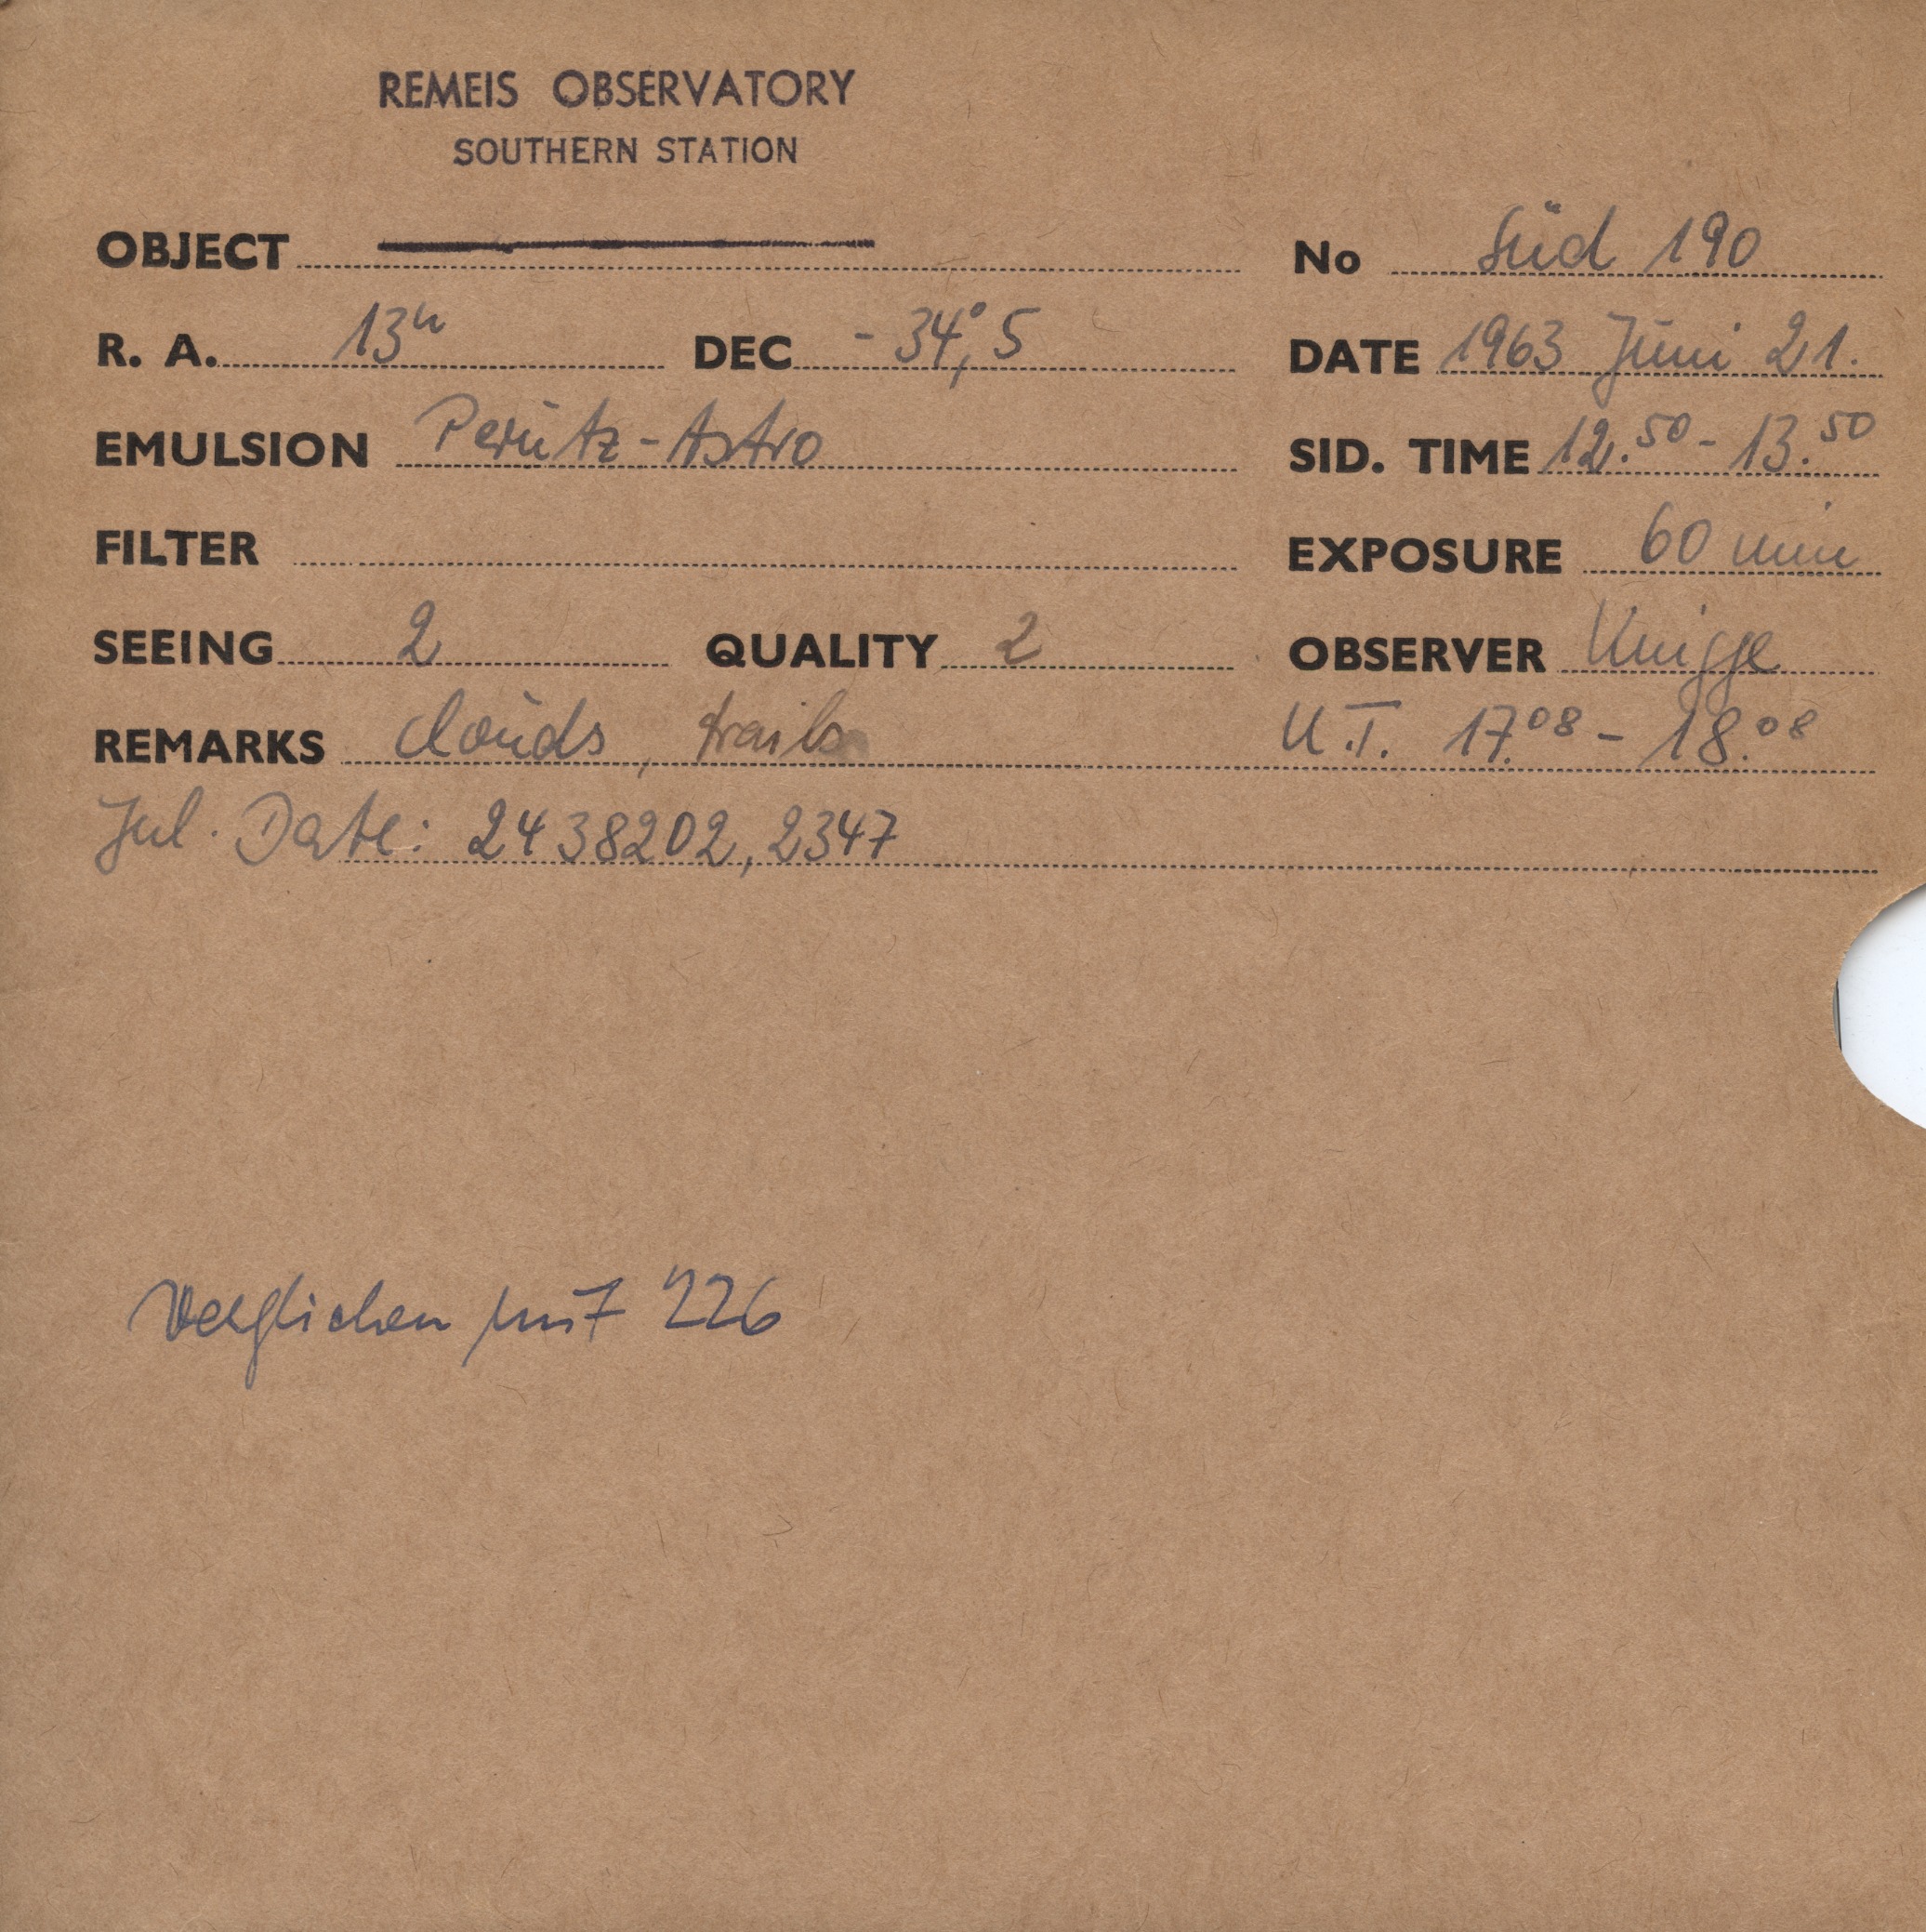 REMEIS OBSERVATORY
SOUTHERN STATION
OBJECT No Süd 190
R. A. 13h DEC -34°,5 DATE 1963 Juni 21.
EMULSION Perutz-Astro SID. TIME 12.50 - 13.50
FILTER EXPOSURE 60 min
SEEING 2 QUALITY 2 OBSERVER Knigge
REMARKS clouds, trails U.T. 17.08 - 18.08
Jul. Date: 2438202,2347
Verglichen mit 226